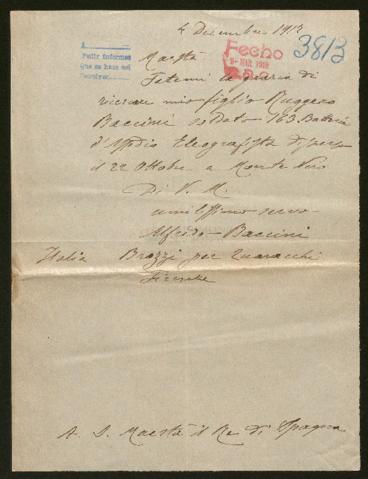 4 Dicembre 1917
A
Pedir informes
que se hace así
Fecho
9 - MAR 1918
3813
Maestà
Fatemi la grazia di
ricercare mio figlio Ruggero
Baccini soldato 163 Batteria
d'Assedio Telegrafista disperso
il 22 Ottobre a Monte Nero
Di V. M.
umilissimo servo
Alfredo Baccini
Italia Brozzi per Quaracchi
Firenze
A. S. Maestà il Re di Spagna